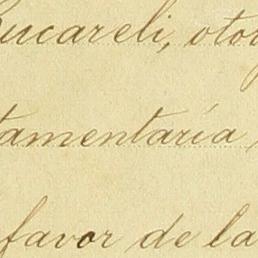 Bucareli, otor
tamentaría
favor de la